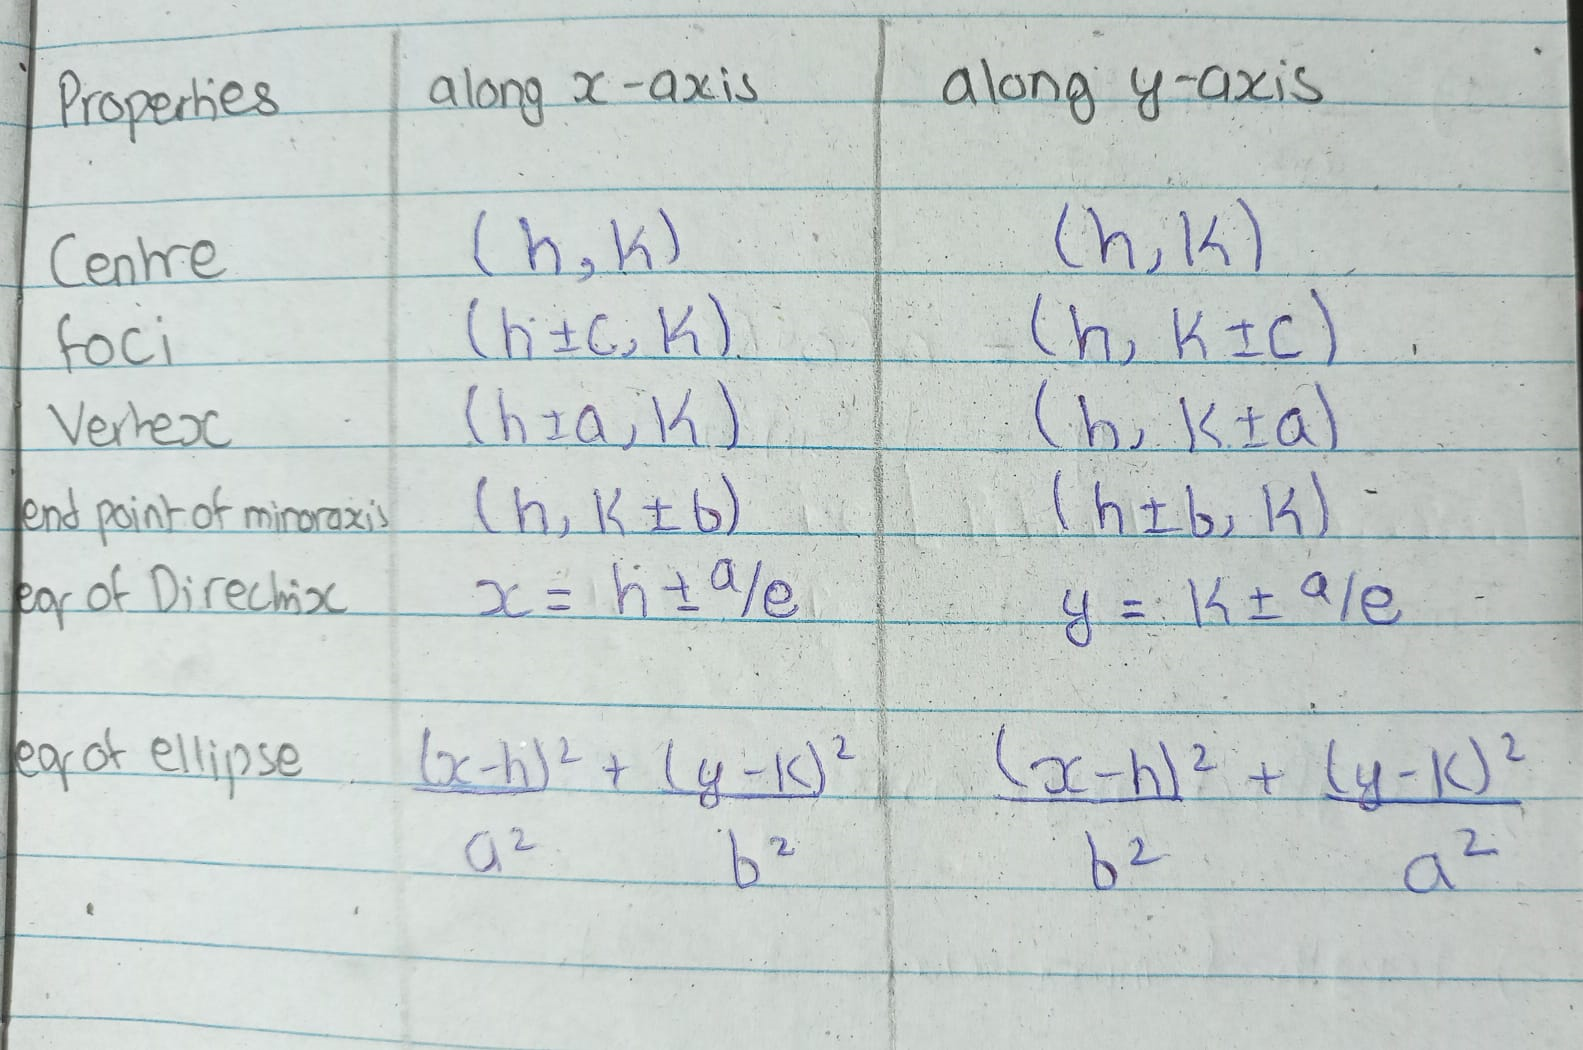 Properties along x-axis along y-axis
Centre (h,k) (h,k)
foci (h±c,k) (h, k±c)
Vertex (h±a,k) (h, k±a)
end point of minoraxis (h, k±b) (h±b, k)
eqr of Directrix x = h ± a/e y = k ± a/e
eqr of ellipse (x-h)²/a² + (y-k)²/b² (x-h)²/b² + (y-k)²/a²